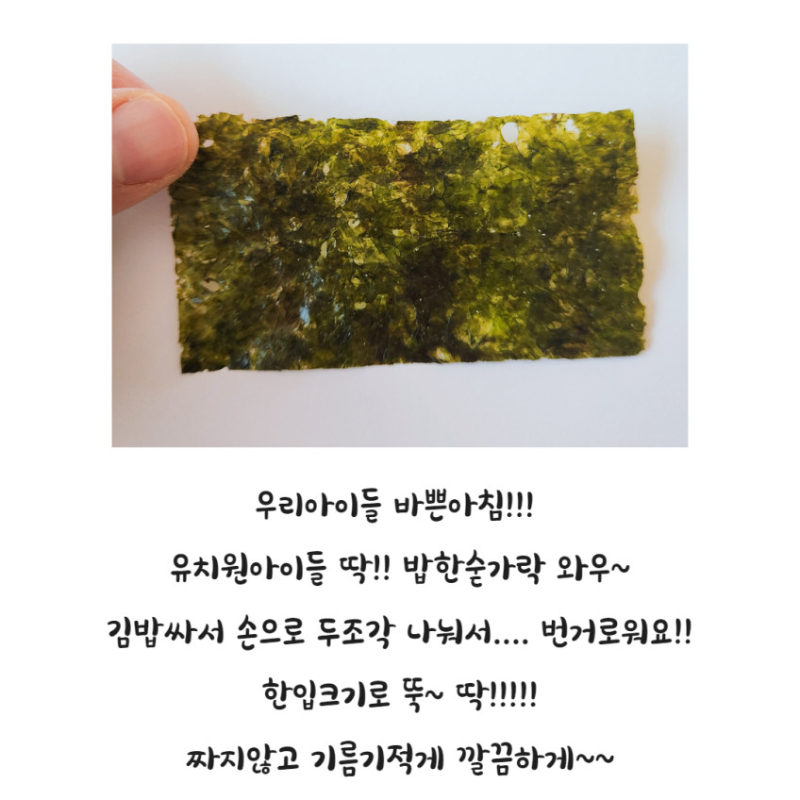 우리아이들 바쁜아침!!!
유치원아이들 딱!! 밥한숟가락 와우~
김밥싸서 손으로 두조각 나눠서.... 번거로워요!!
한입크기로 뚝~ 딱!!!!!
짜지않고 기름기적게 깔끔하게~~